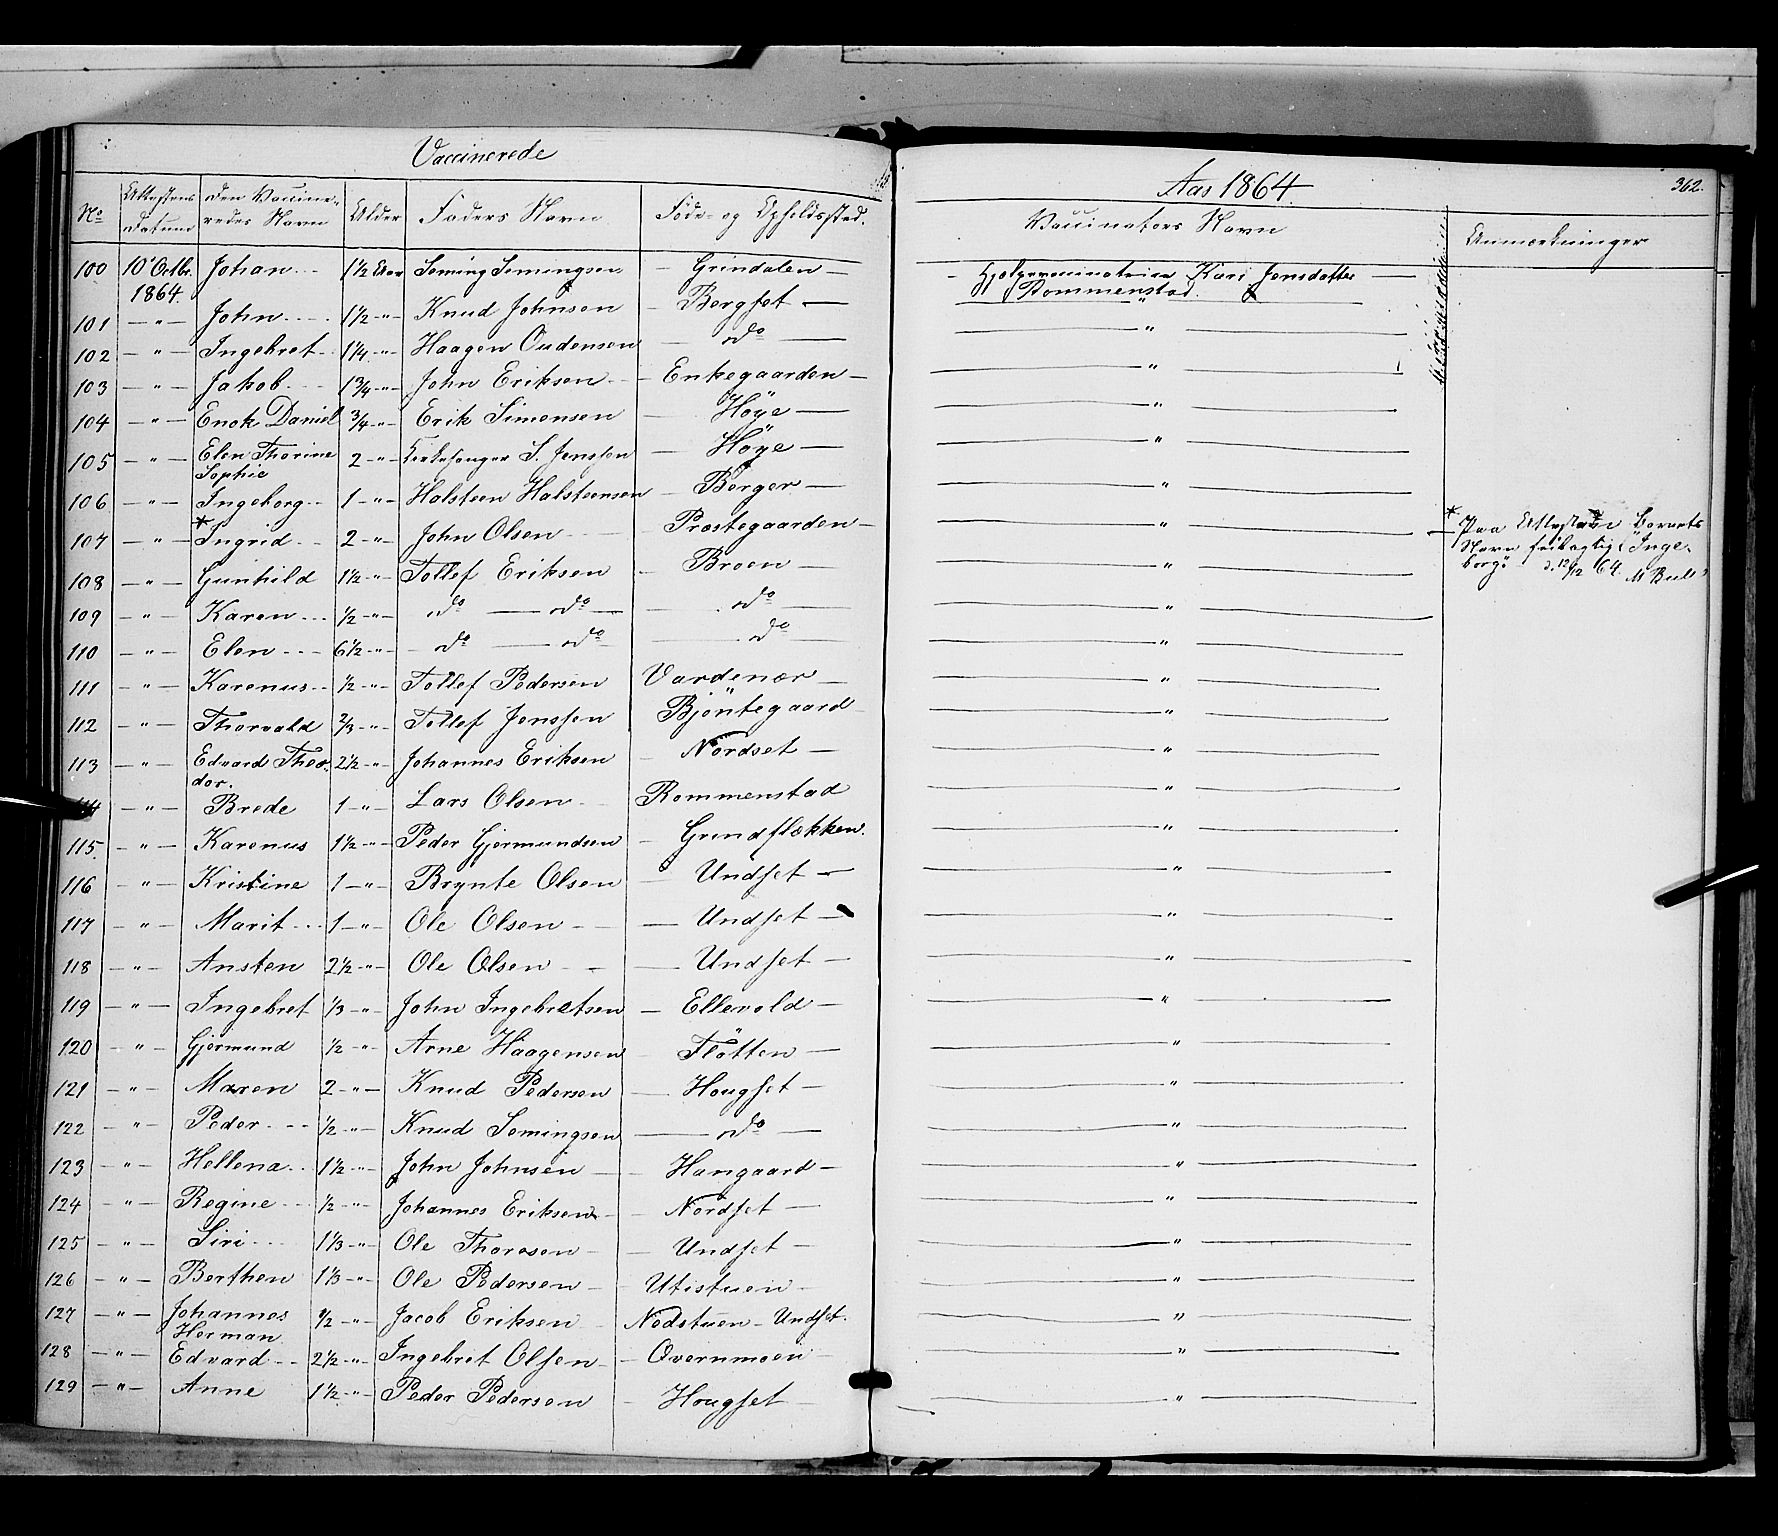 Vaccinerede
Aar 1864.
362.
No Attestens Datum Den Vaccineredes Navn Alder Faders Navn Føde- og Opholdssted. Vaccinators Navn Anmærkninger
100 10' Octbr. 1864. Johan 1½ Aar Seming Semingsen Grindalen Hjælpevaccinatrice Kari Jensdatter Rommenstad.
101 " John 1½ " Knud Johnsen Bergset "
102 " Ingebret 1¼ " Haagen Oudensen do "
103 " Jakob 1¾ " John Eriksen Enkegaarden "
104 " Enok Daniel ¾ " Erik Simensen Høye "
105 " Elen Thorine Sophie 2 " Kirkesanger S. Jenssen Høye "
106 " Ingeborg 1 " Halsteen Halsteensen Berger "
107 " * Ingrid 2 " John Olsen Præstegaarden " * Paa Attesten Barnets Navn feilagtig: "Ingeborg" d. 12/12 64. M Bull
108 " Gunhild 1½ " Tollef Eriksen Broen "
109 " Karen ½ " do do do "
110 " Elen 6½ " do do do "
111 " Karenus ½ " Tollef Pedersen Vardenær "
112 " Thorvald 2/3 " Tollef Jenssen Bjöntegaard "
113 " Edvard Theodor. 2½ " Johannes Eriksen Nordset "
114 " Brede 1 " Lars Olsen Rommenstad "
115. " Karenus 1½ " Peder Gjermundsen Grindflækken. "
116 " Kristine 1 " Brynte Olsen Undset "
117 " Marit 1 " Ole Olsen Undset "
118 " Ansten 2½ " Ole Olsen Undset "
119 " Ingebret 1/3 " John Ingebretsen Ellevold "
120 " Gjermund ½ " Arne Haagensen Flötten "
121 " Maren 2 " Knud Pedersen Hougset "
122 " Peder ½ " Knud Semingsen do "
123 " Hellena 1½ " John Johnsen Hangaard "
124 " Regine ½ " Johannes Eriksen Nordset "
125 " Siri 1 1/3 " Ole Thoresen Undset "
126 " Berthen 1 1/3 " Ole Pedersen Utistuen "
127 " Johannes Herman ½ " Jacob Eriksen Nodstuen Undset. "
128 " Edvard 2½ " Ingebret Olsen Overnmoen "
129 " Anne 1½ " Peder Pedersen Hougset "